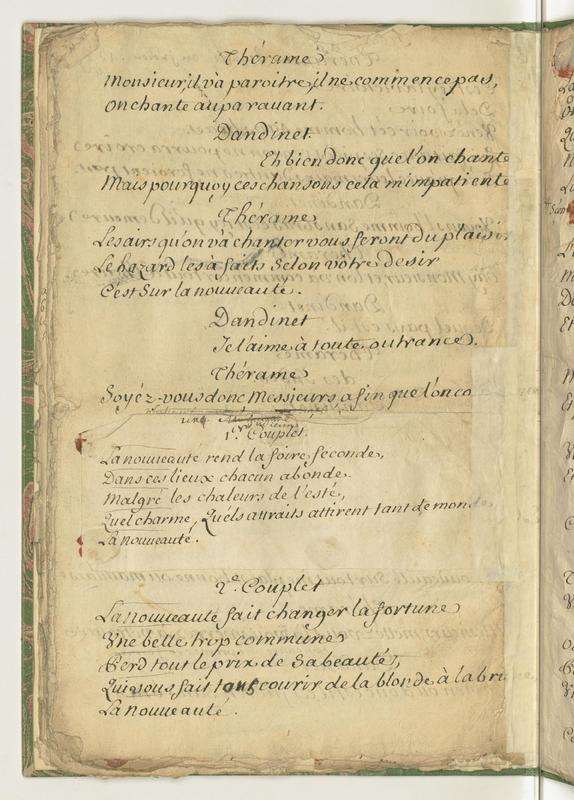 Thérame
Monsieur, il và paroitre, il ne commence pas,
on chante auparavant.
Dandinet.
Eh bien donc que l'on chante
Mais pourquoy ces chansons cela m'impatiente
Thérame
Les airs qu'on và chanter vous feront du plaisir
Le hazard les à faits Selon vôtre desir
C'est Sur la nouveauté.
Dandinet
Je l'aime à toute outrance.
Thérame
Soyéz-vous donc Messieurs afin que l'on co
1er. Couplet.
La nouveauté rend la foire feconde,
Dans ces lieux chacun abonde.
Malgré les chaleurs de l'esté,
Quel charme, Quels attraits attirent tant de monde
La nouveauté.
2e. Couplet
La nouveauté fait changer la fortune
Vne belle trop commune
Perd tout le prix de Sa beauté,
Qui vous fait tous courir de la blonde à la bru
La nouveauté.